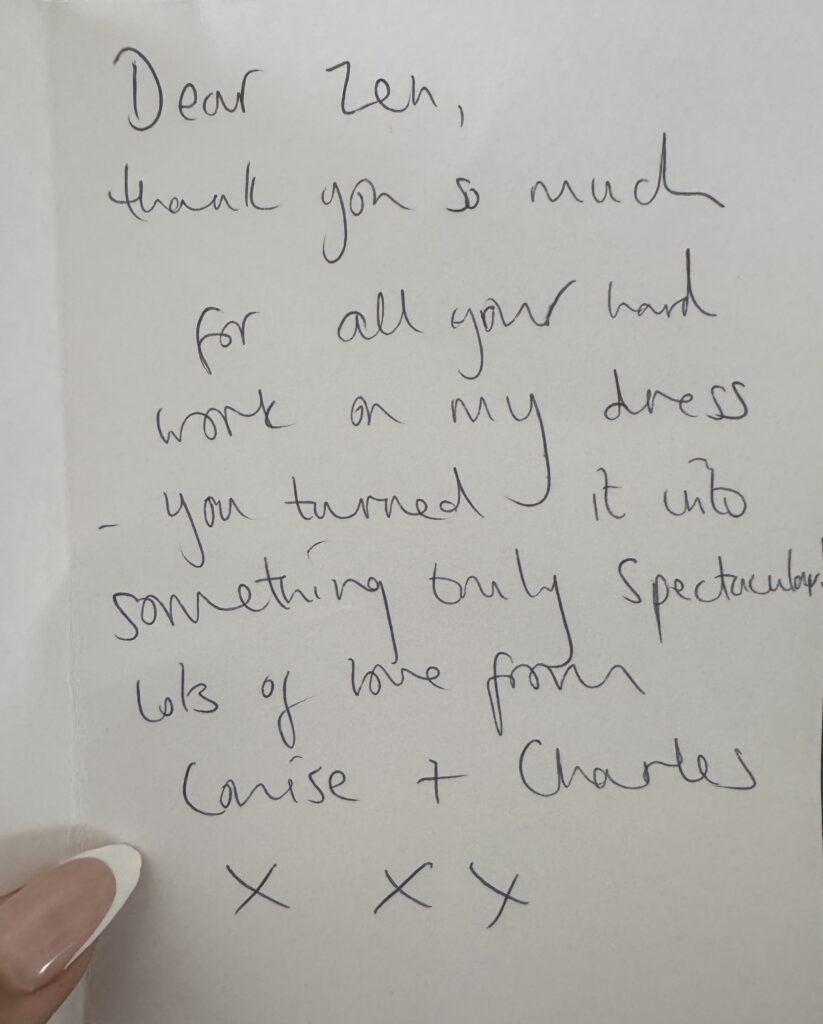 Dear Zen,
thank you so much
for all your hard
work on my dress
- you turned it into
something truly spectacular!
lots of love from
Louise + Charles
x x x